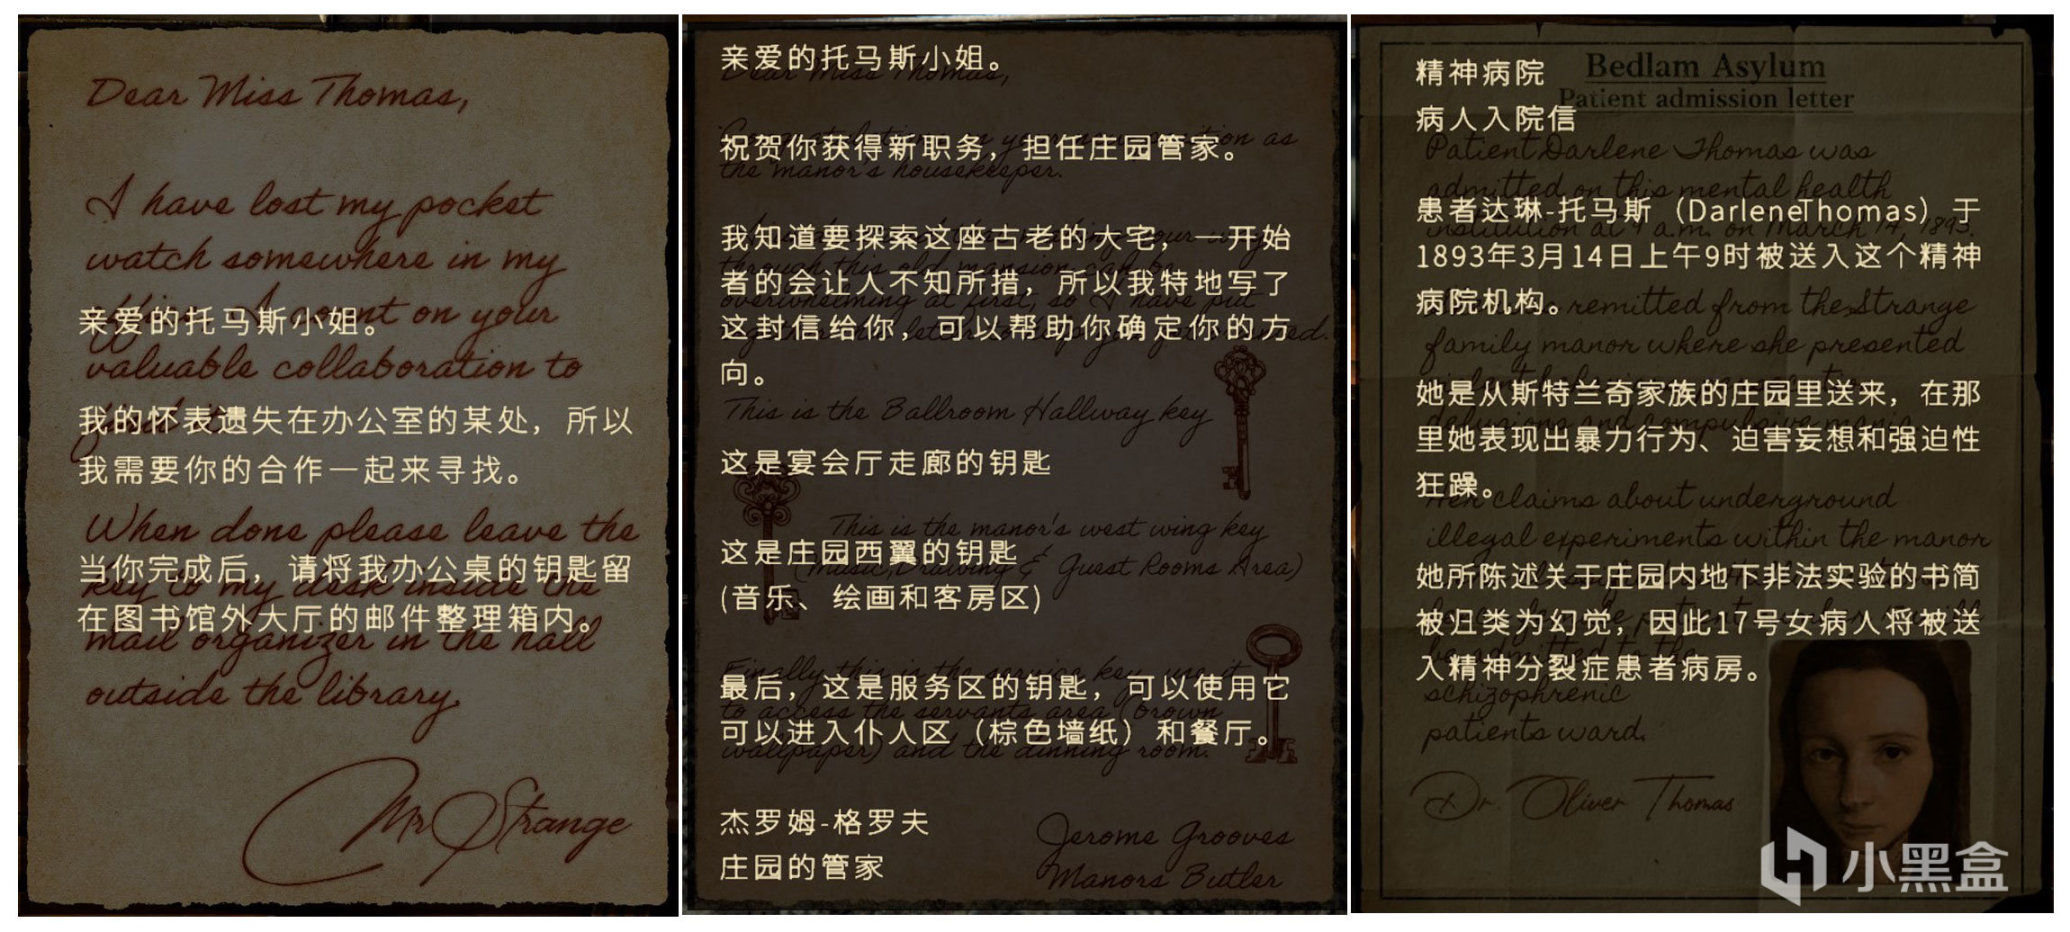 Dear Miss Thomas,
I have lost my pocket
watch somewhere in my
count on your
亲爱的托马斯小姐。
valuable collaboration to
我的怀表遗失在办公室的某处，所以
我需要你的合作一起来寻找。
When done please leave the
当你完成后，请将我办公桌的钥匙留
key to my desk inside the
在图书馆外大厅的邮件整理箱内。
mail organizer in the hall
outside the library.
Mr Strange
亲爱的托马斯小姐。
Dear Miss Thomas,
祝贺你获得新职务，担任庄园管家。
the manor's housekeeper.
我知道要探索这座古老的大宅，一开始
through this old mansion
者的会让人不知所措，所以我特地写了
overwhelming at first, so I have put
这封信给你，可以帮助你确定你的方
向。
This is the Ballroom Hallway key
这是宴会厅走廊的钥匙
This is the manor's west wing key
这是庄园西翼的钥匙
(Music, Drawing & Guest Rooms Area)
(音乐、绘画和客房区)
Finally this is the service key, use it
最后，这是服务区的钥匙，可以使用它
to access the servants area (brown
可以进入仆人区（棕色墙纸）和餐厅。
wallpaper) and the dinning room.
杰罗姆-格罗夫
庄园的管家
Jerome Grooves
Manors Butler
Bedlam Asylum
Patient admission letter
精神病院
病人入院信
Patient Darlene Thomas was
admitted on this mental health
患者达琳-托马斯（DarleneThomas）于
institution at 9 a.m. on March 14, 1893.
1893年3月14日上午9时被送入这个精神
病院机构。
remitted from the Strange
family manor where she presented
她是从斯特兰奇家族的庄园里送来，在那
delusions and compulsive mania.
里她表现出暴力行为、迫害妄想和强迫性
狂躁。
Her claims about underground
illegal experiments within the manor
她所陈述关于庄园内地下非法实验的书简
被归类为幻觉，因此17号女病人将被送
入精神分裂症患者病房。
schizophrenic
patients ward.
Dr. Oliver Thomas
小黑盒